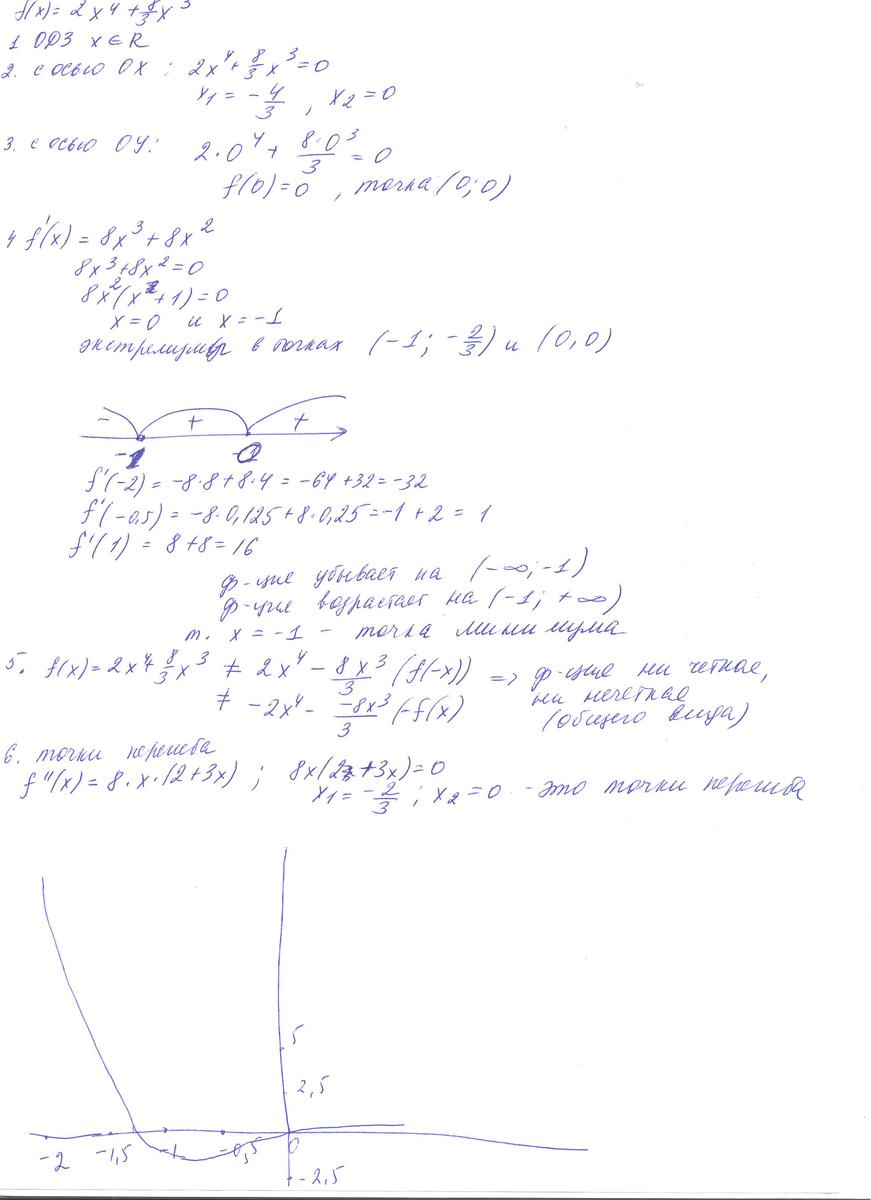 f(x) = 2x⁴ + 8/3 x³
1 ОДЗ x ∈ R
2. с осью OX : 2x⁴ + 8/3 x³ = 0
x₁ = -4/3 , x₂ = 0
3. с осью OY: 2·0⁴ + 8·0³/3 = 0
f(0) = 0 , точка (0;0)
4 f'(x) = 8x³ + 8x²
8x³ + 8x² = 0
8x²(x + 1) = 0
x = 0 и x = -1
экстремумы в точках (-1; -2/3) и (0,0)
- + +
-1 0
f'(-2) = -8·8 + 8·4 = -64 + 32 = -32
f'(-0,5) = -8·0,125 + 8·0,25 = -1 + 2 = 1
f'(1) = 8 + 8 = 16
ф-ция убывает на (-∞; -1)
ф-ция возрастает на (-1; +∞)
т. x = -1 - точка минимума
5. f(x) = 2x⁴ + 8/3 x³ ≠ 2x⁴ - 8x³/3 (f(-x)) => ф-ция ни четная,
≠ -2x⁴ - -8x³/3 (-f(x) ни нечетная
(общего вида)
6. точки перегиба
f''(x) = 8·x·(2+3x) ; 8x(2+3x) = 0
x₁ = -2/3 ; x₂ = 0 - это точки перегиба
5
2,5
-2 -1,5 -1 -0,5 0
-2,5